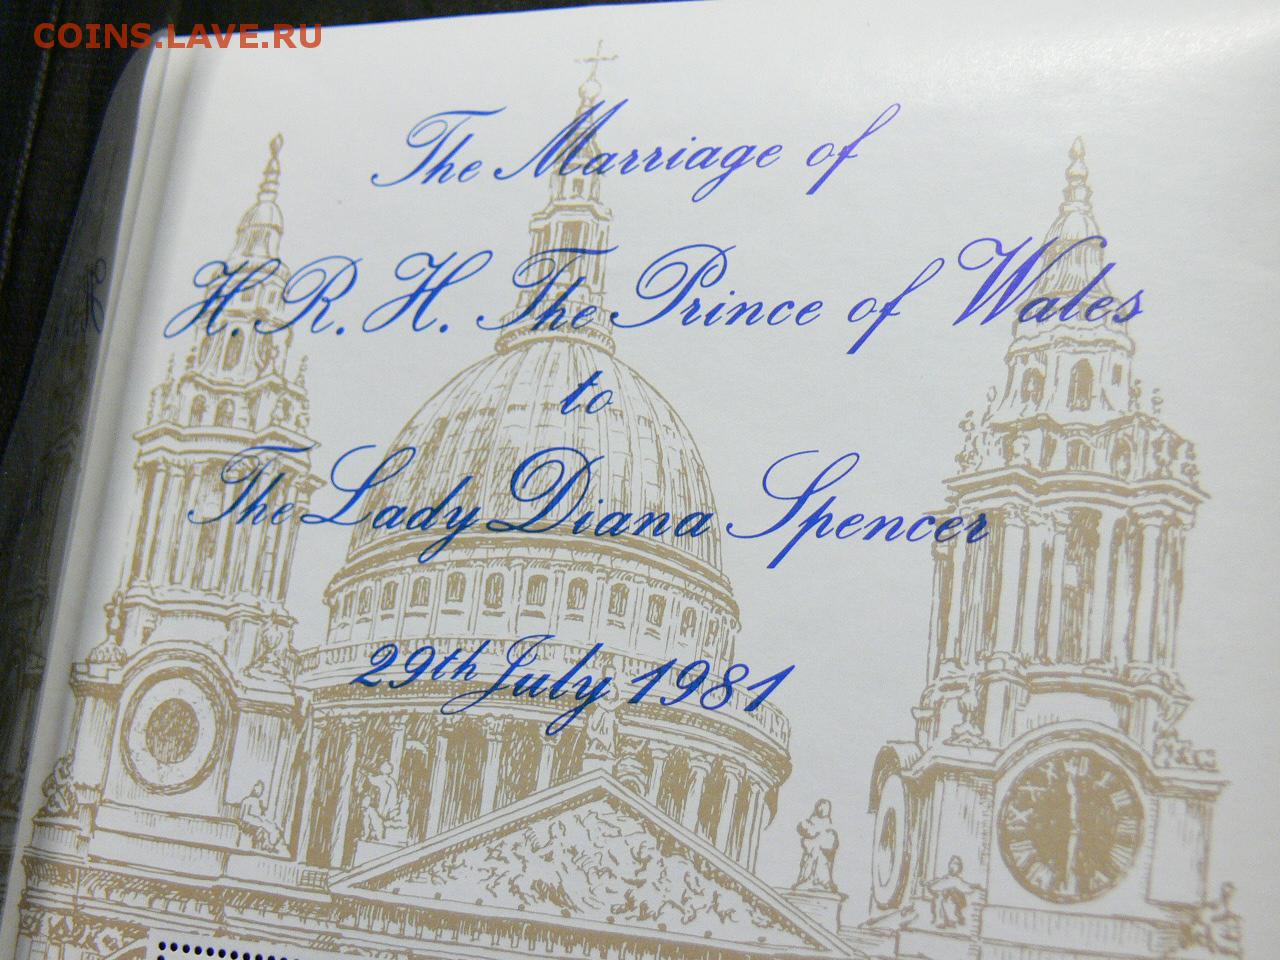 COINS.LAVE.RU
The Marriage of
H.R.H. The Prince of Wales
to
The Lady Diana Spencer
29th July 1981